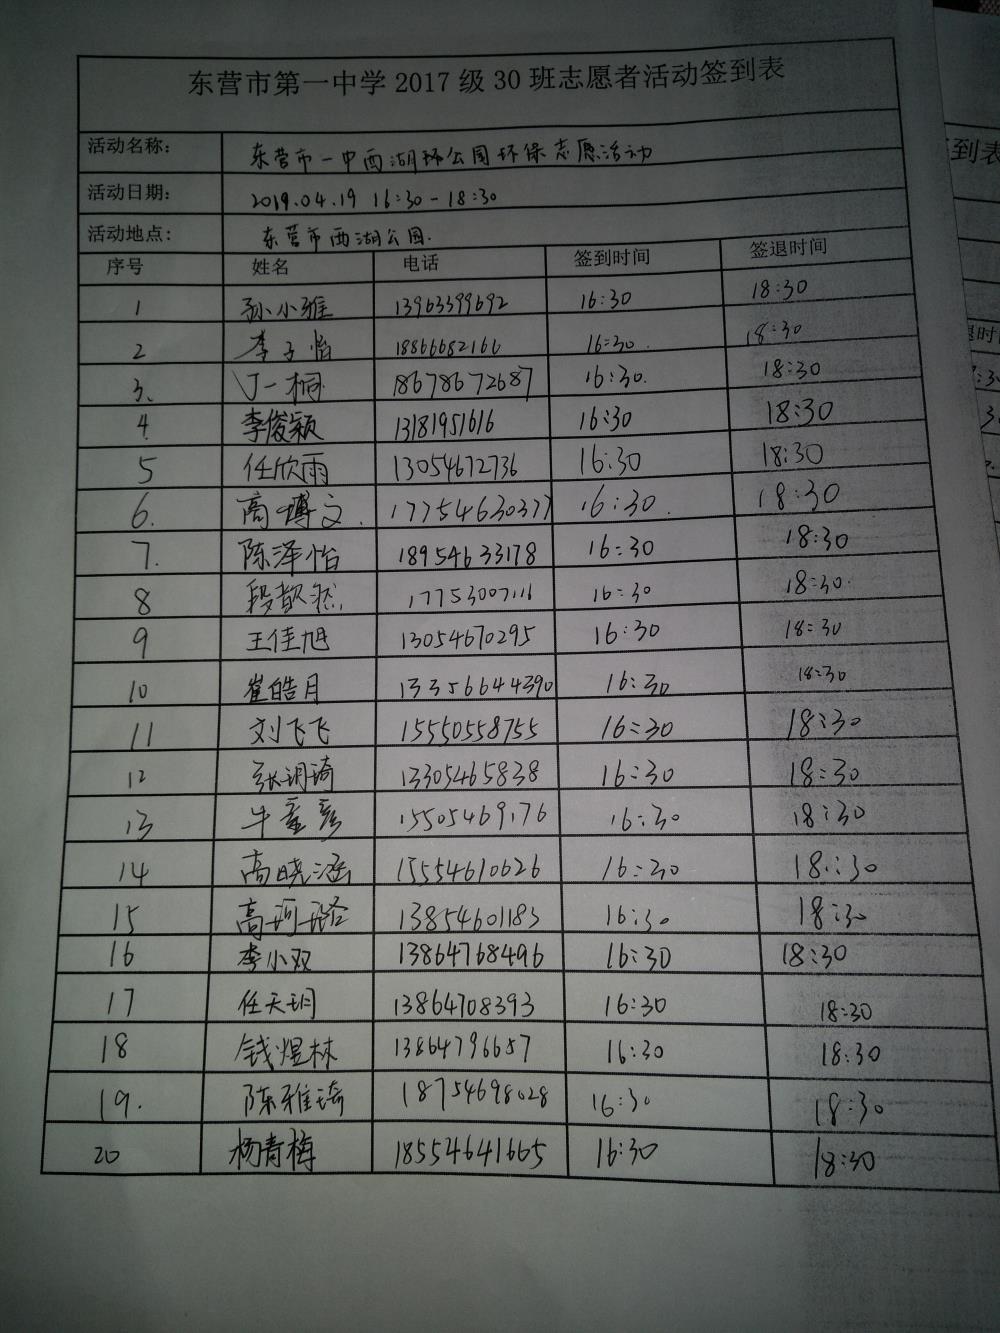 东营市第一中学2017级30班志愿者活动签到表
活动名称: 东营市一中西湖环公园环保志愿活动
活动日期: 2019.04.19 16:30-18:30
活动地点: 东营市西湖公园.
序号 姓名 电话 签到时间 签退时间
1 孙小雅 13963399692 16:30 18:30
2 李子怡 18866682166 16:30. 18:30
3、 丁一桐 18678672687 16:30. 18:30
4 李俊颖 13181951616 16:30 18:30
5 任欣雨 13054672736 16:30 18:30
6. 高博文. 17754630377 16:30. 18:30
7. 陈泽怡 18954633178 16:30 18:30
8 段懿 17753007116 16:30 18:30.
9 王佳旭 13054670295 16:30 18:30
10 崔皓月 13356644390 16:30 18:30
11 刘飞飞 15550558755 16:30 18:30
12 张玥琦 13305465838 16:30 18:30
13 牛童彦 15505469176 16:30 18:30
14 高晓涵 15554610626 16:30 18:30
15 高珂璐 13854601183 16:30 18:30
16 李小双 13864768496 16:30 18:30
17 任天玥 13864708393 16:30 18:30
18 钱煜林 13864796657 16:30 18:30
19. 陈雅琦 18754698028 16:30 18:30
20 杨青梅 18554641665 16:30 18:30
到表